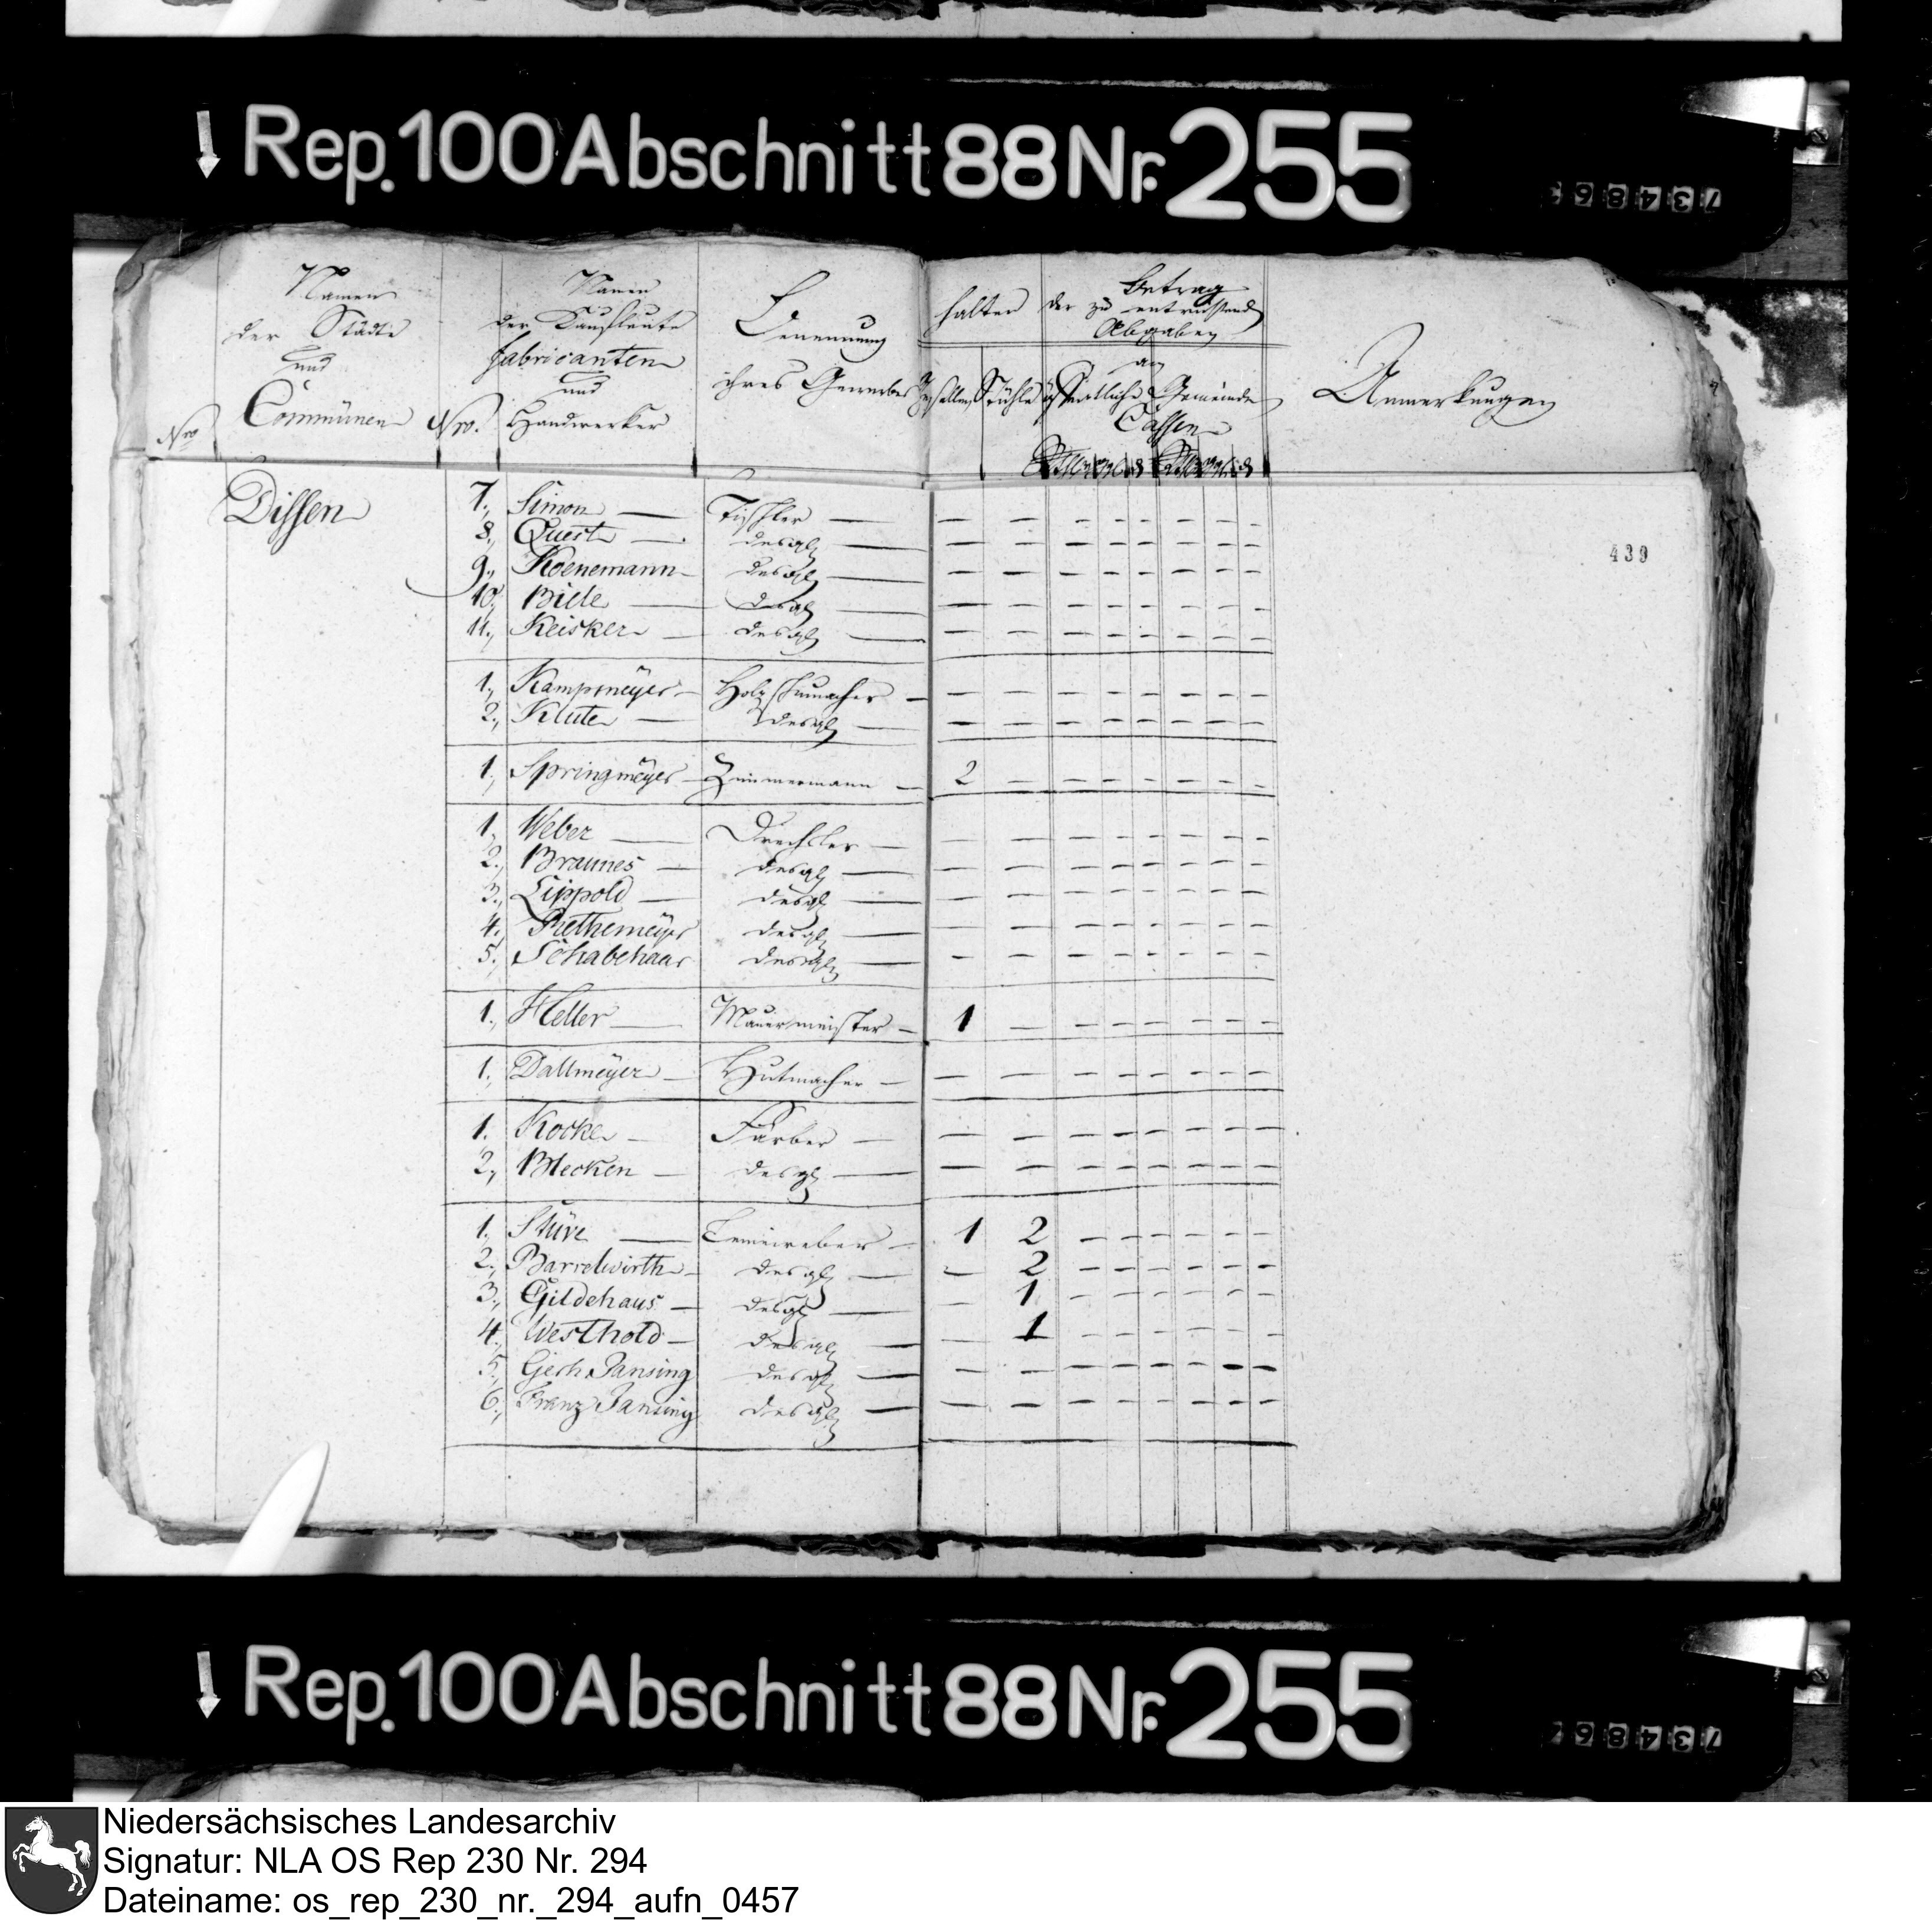 Rep. 100 Abschnitt 88 Nr. 255
734865
Nro
Namen
der Städte
und
Commünen
Nro.
Namen
der Kaufleute
Fabricanten
und
Handwerker
Benennung
ihres Gewerbes
halten
Gesellen
Stühle
Betrag
der zu entrichtend
Abgaben
an
öffentliche
Gemeinde
Cassen
Anmerkungen
439
Dissen
7., Simon — Tischler — — — — — — — — —
8., Quest — desgl — — — — — — — — —
9., Koenemann — desgl — — — — — — — — —
10., Biele — desgl — — — — — — — — —
11., Keisker — desgl — — — — — — — — —
1., Kampmeÿer — Holzschumacher — — — — — — — — —
2., Klute — desgl — — — — — — — — —
1., Springmeÿer — Zimmermann — 2 — — — — — — —
1., Weber — Drechsler — — — — — — — — —
2., Braunes — desgl — — — — — — — — —
3., Lippold — desgl — — — — — — — — —
4., Riethemeÿer desgl — — — — — — — — —
5., Schabehaar desgl — — — — — — — — —
1., Heller — Mauermeister — 1 — — — — — — —
1., Dallmeÿer — Hutmacher — — — — — — — — —
1. Kocke — Färber — — — — — — — — —
2., Blecken — desgl — — — — — — — — —
1., Stüve — Leineweber — 1 2 — — — — — —
2., Barrelwirth — desgl — — 2 — — — — — —
3., Gildehaus — desgl — — 1 — — — — — —
4., Westhold — desgl — — 1 — — — — — —
5., Gerh Jansing desgl — — — — — — — — —
6., Franz Jansing desgl — — — — — — — — —
Rep. 100 Abschnitt 88 Nr. 255
Niedersächsisches Landesarchiv
Signatur: NLA OS Rep 230 Nr. 294
Dateiname: os_rep_230_nr._294_aufn_0457